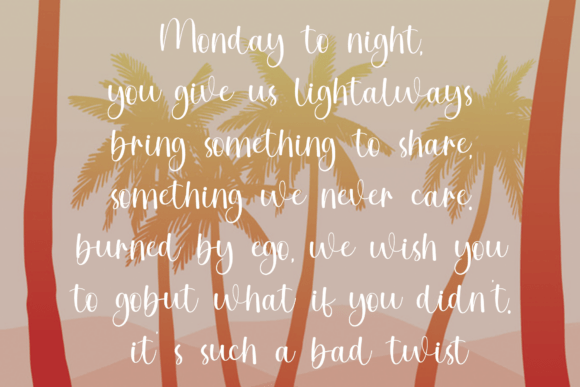 Monday to night,
you give us lightalways
bring something to share,
something we never care.
burned by ego, we wish you
to gobut what if you didn't.
it's such a bad twist